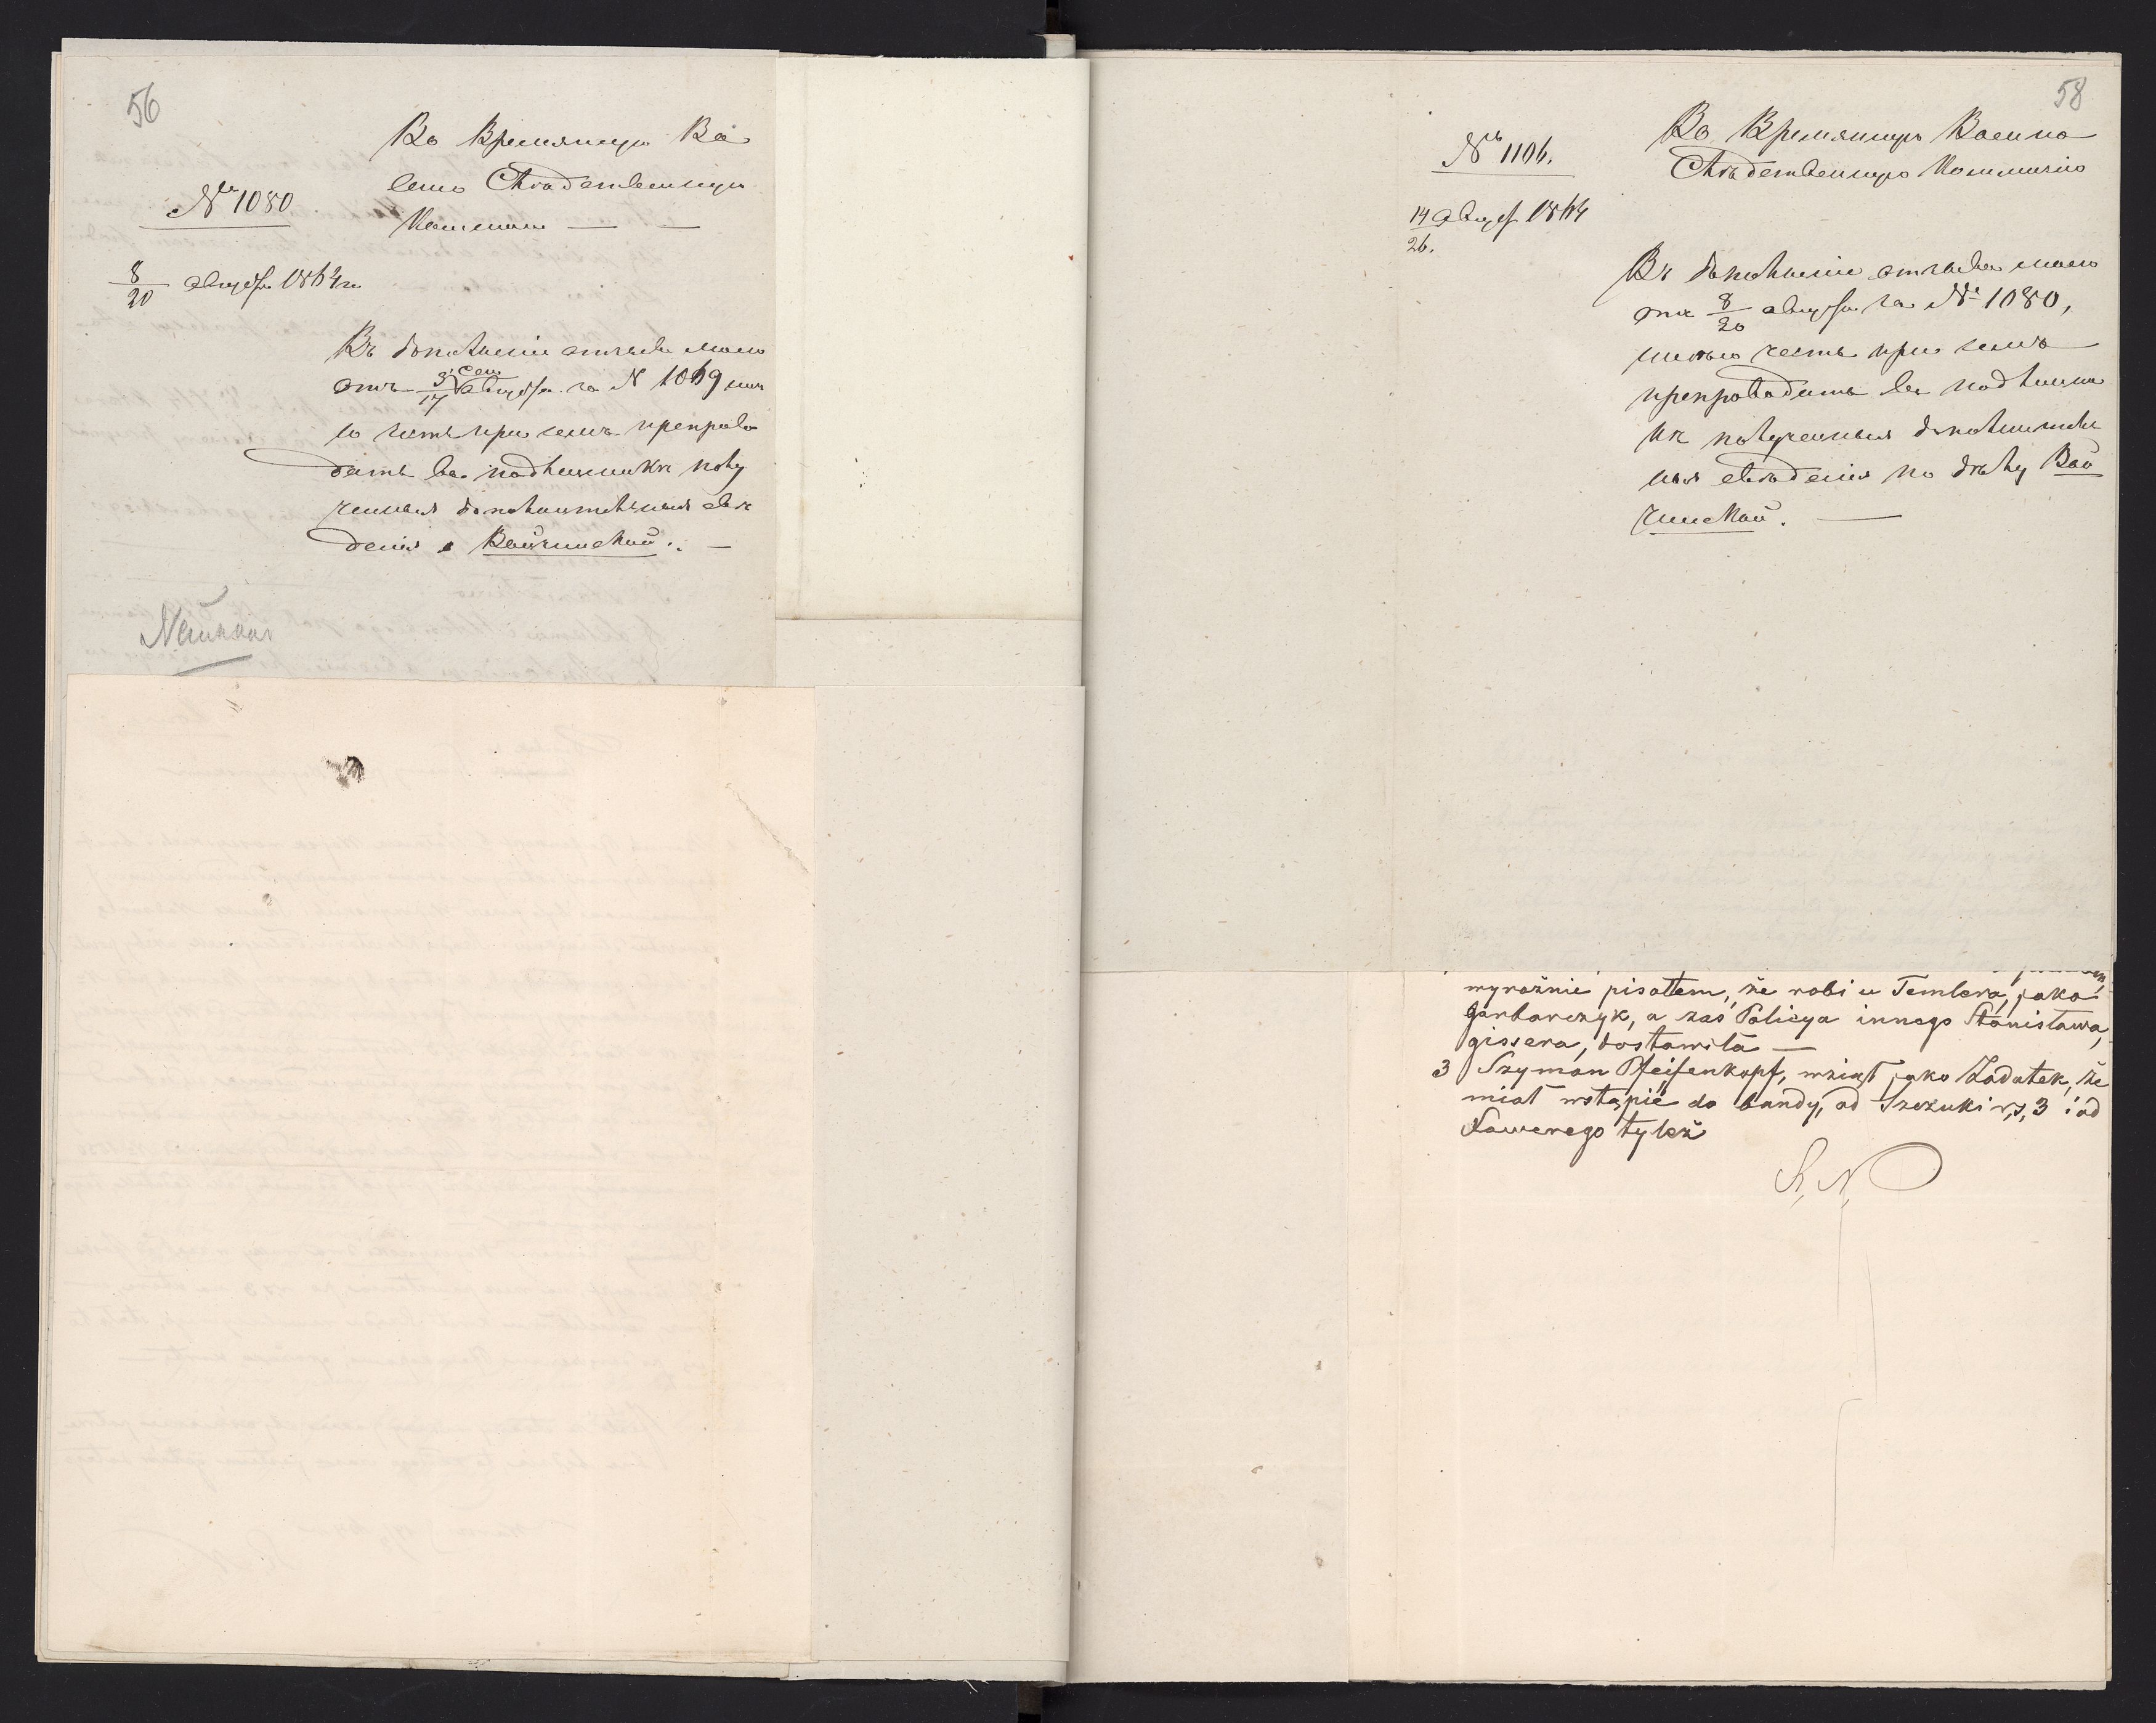 56
Во Временную Во
енно Следственную
Коммисію
№ 1080
8/20 августа 1864 г.
Въ дополненіе отзыва моего
отъ 5/17 сего августа за № 1069 имѣ
ю честь при семъ препрово
дить въ подлинникѣ полу
ченныя дополнительныя свѣ
денія о Войчинской. —
58
№ 1106.
14/26. август 1864
Во Временную Военно
Слѣдственную Коммисію
Въ дополненіе отзыва моего
отъ 8/20 августа за № 1080,
имѣю честь при семъ
препроводить въ подлинни
кѣ полученныя дополнитель
ныя свѣденія по дѣлу Вой
чинской. —
wyraźnie pisałem, że robi u Temlera, jako
garbarczyk, a zaś Policya innego Stanisława,
gissera, dostawiła —
3 Szymon Pfeifenkopf, wziął jako Zadatek, że
miał wstąpić do bandy, od Szczuki r,s, 3 i od
Xawerego tyleż